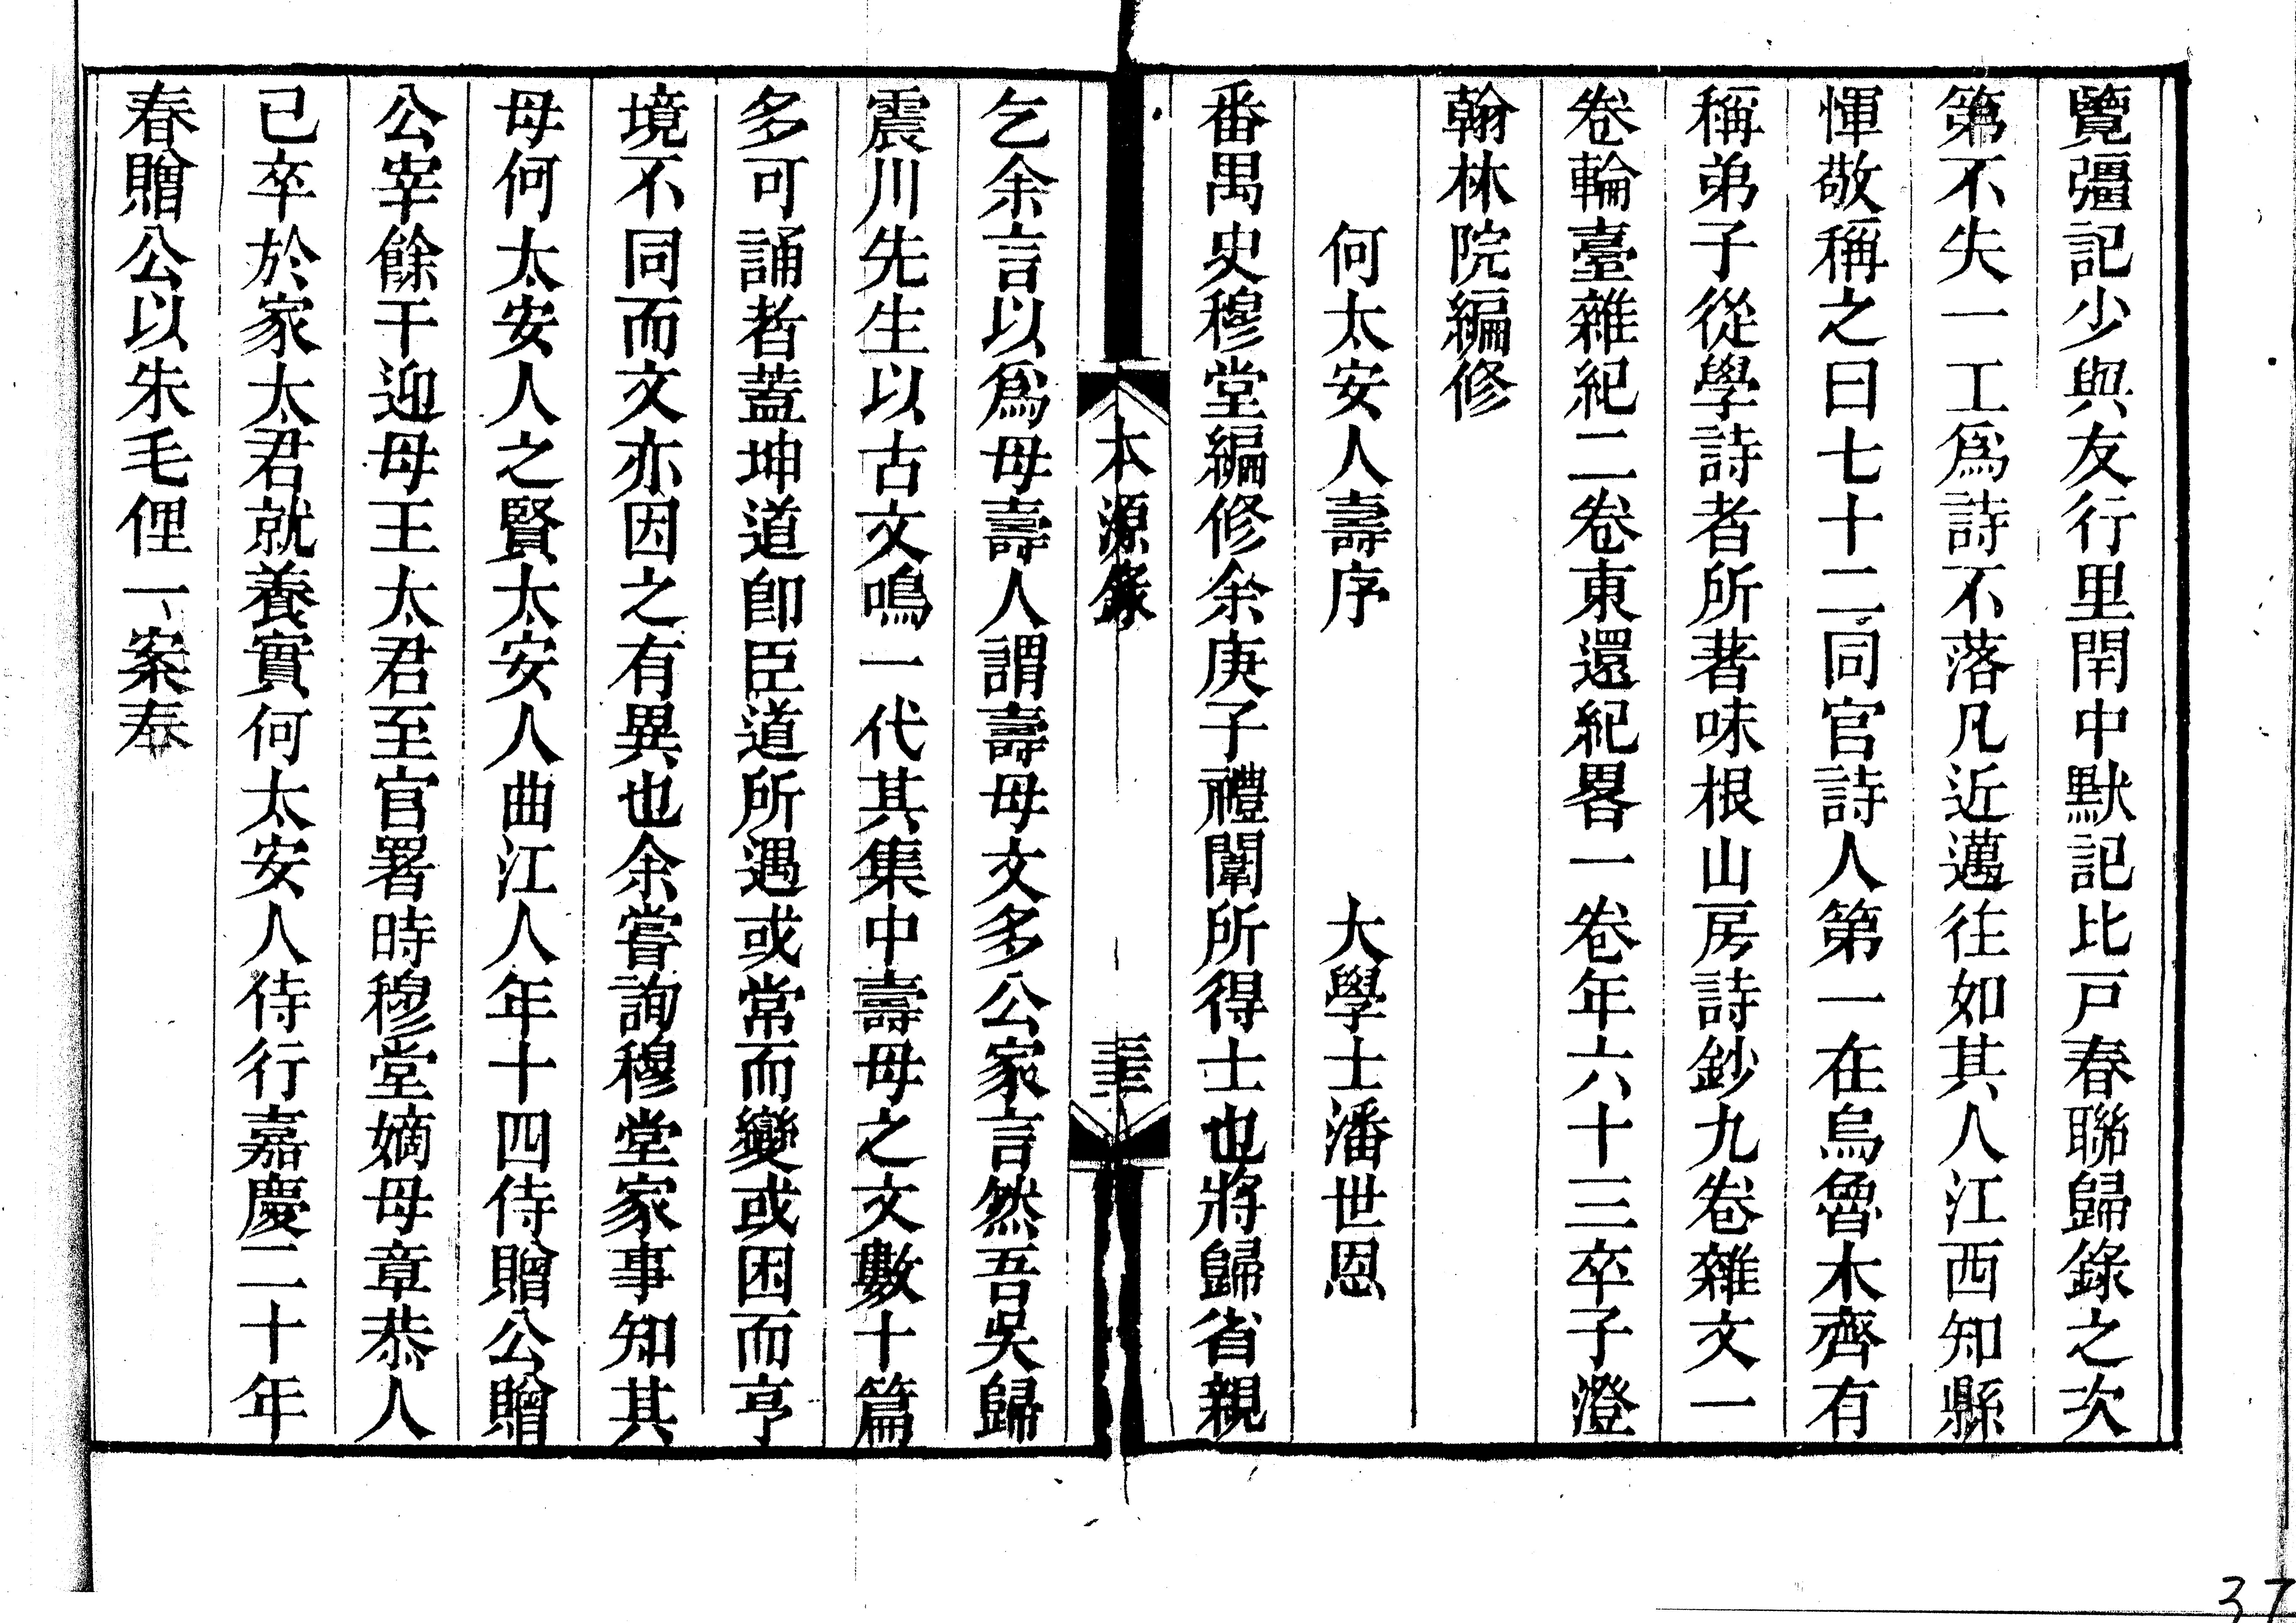 覽彊記少與友行里閈中默記比戶春聯歸錄之次
第不失一工爲詩不落凡近邁往如其人江西知縣
惲敬稱之曰七十二同官詩人第一在烏魯木齊有
稱弟子從學詩者所著味根山房詩鈔九卷雜文一
卷輪臺雜紀二卷東還紀畧一卷年六十三卒子澄
翰林院編修
何太安人壽序 大學士潘世恩
番禺史穆堂編修余庚子禮闈所得士也將歸省親
本源錄
乞余言以爲母壽人謂壽母文多公家言然吾吳歸
震川先生以古文鳴一代其集中壽母之文數十篇
多可誦者蓋坤道卽臣道所遇或常而變或困而亨
境不同而文亦因之有異也余嘗詢穆堂家事知其
母何太安人之賢太安人曲江人年十四侍贈公贈
公宰餘干迎母王太君至官署時穆堂嫡母章恭人
已卒於家太君就養實何太安人侍行嘉慶二十年
春贈公以朱毛俚一案奉
37